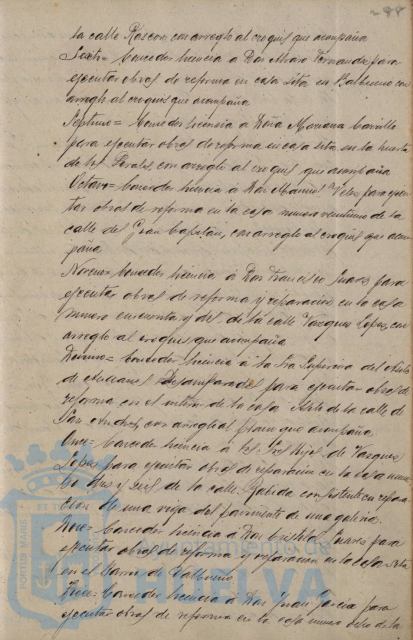 288
la calle Rascon con arreglo al croquis que acompaña
Sexto= Conceder licencia a Don Alvaro Fernandez para
ejecutar obras de reforma en casa sita en Balbueno con
arreglo al croquis que acompaña
Septimo= Conceder licencia a Doña Mariana Carrillo
para ejecutar obras de reforma en casa sita en la huerta
de con arreglo al croquis que acompaña
Octavo= Conceder licencia a Don Manuel Velez para ejecu-
tar obras de reforma en la casa numero veintiuno de la
calle del Gran Capitan, con arreglo al croquis que acom-
paña
Noveno= Conceder licencia á Don Francisco Suarez para
ejecutar obras de reforma y reparacion en la casa
numero cincuenta y dos de la calle Vazquez Lopez, con
arreglo al croquis que acompaña
Decimo= Conceder licencia á la Sra Superiora del Asilo
de Ancianos Desamparados para ejecutar obras de
reforma en el interior de la casa Asilo de la calle de
San Andres, con arreglo al plano que acompaña
Once= Conceder licencia á los Sres Hijos de Vazquez
Lopez para ejecutar obras de reparacion en la casa nume-
ro diez y seis de la calle Rabida consistente en
de una viga del pavimento de una galeria.
Doce= Conceder licencia á Don Cristobal Suarez para
ejecutar obras de reforma y reparacion en la casa sita
en el barrio de Valbueno
Trece= Conceder licencia á Don Juan Garcia para
ejecutar obras de reforma en la casa numero ocho de la
PORTUS MARIS
ET TERRÆ
Ayuntamiento de
HUELVA